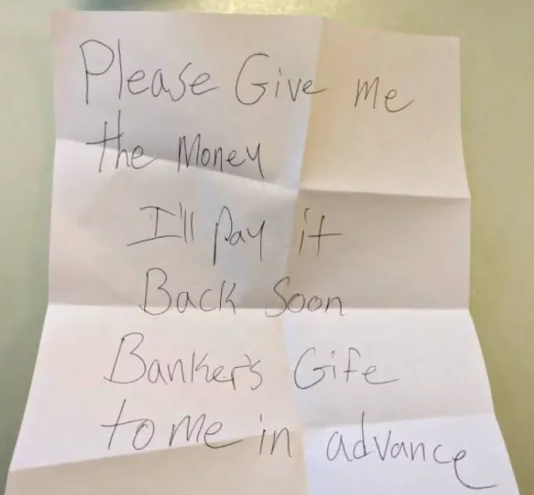 Please Give me
the Money
I'll pay it
Back Soon
Banker's Gife
to me in advance